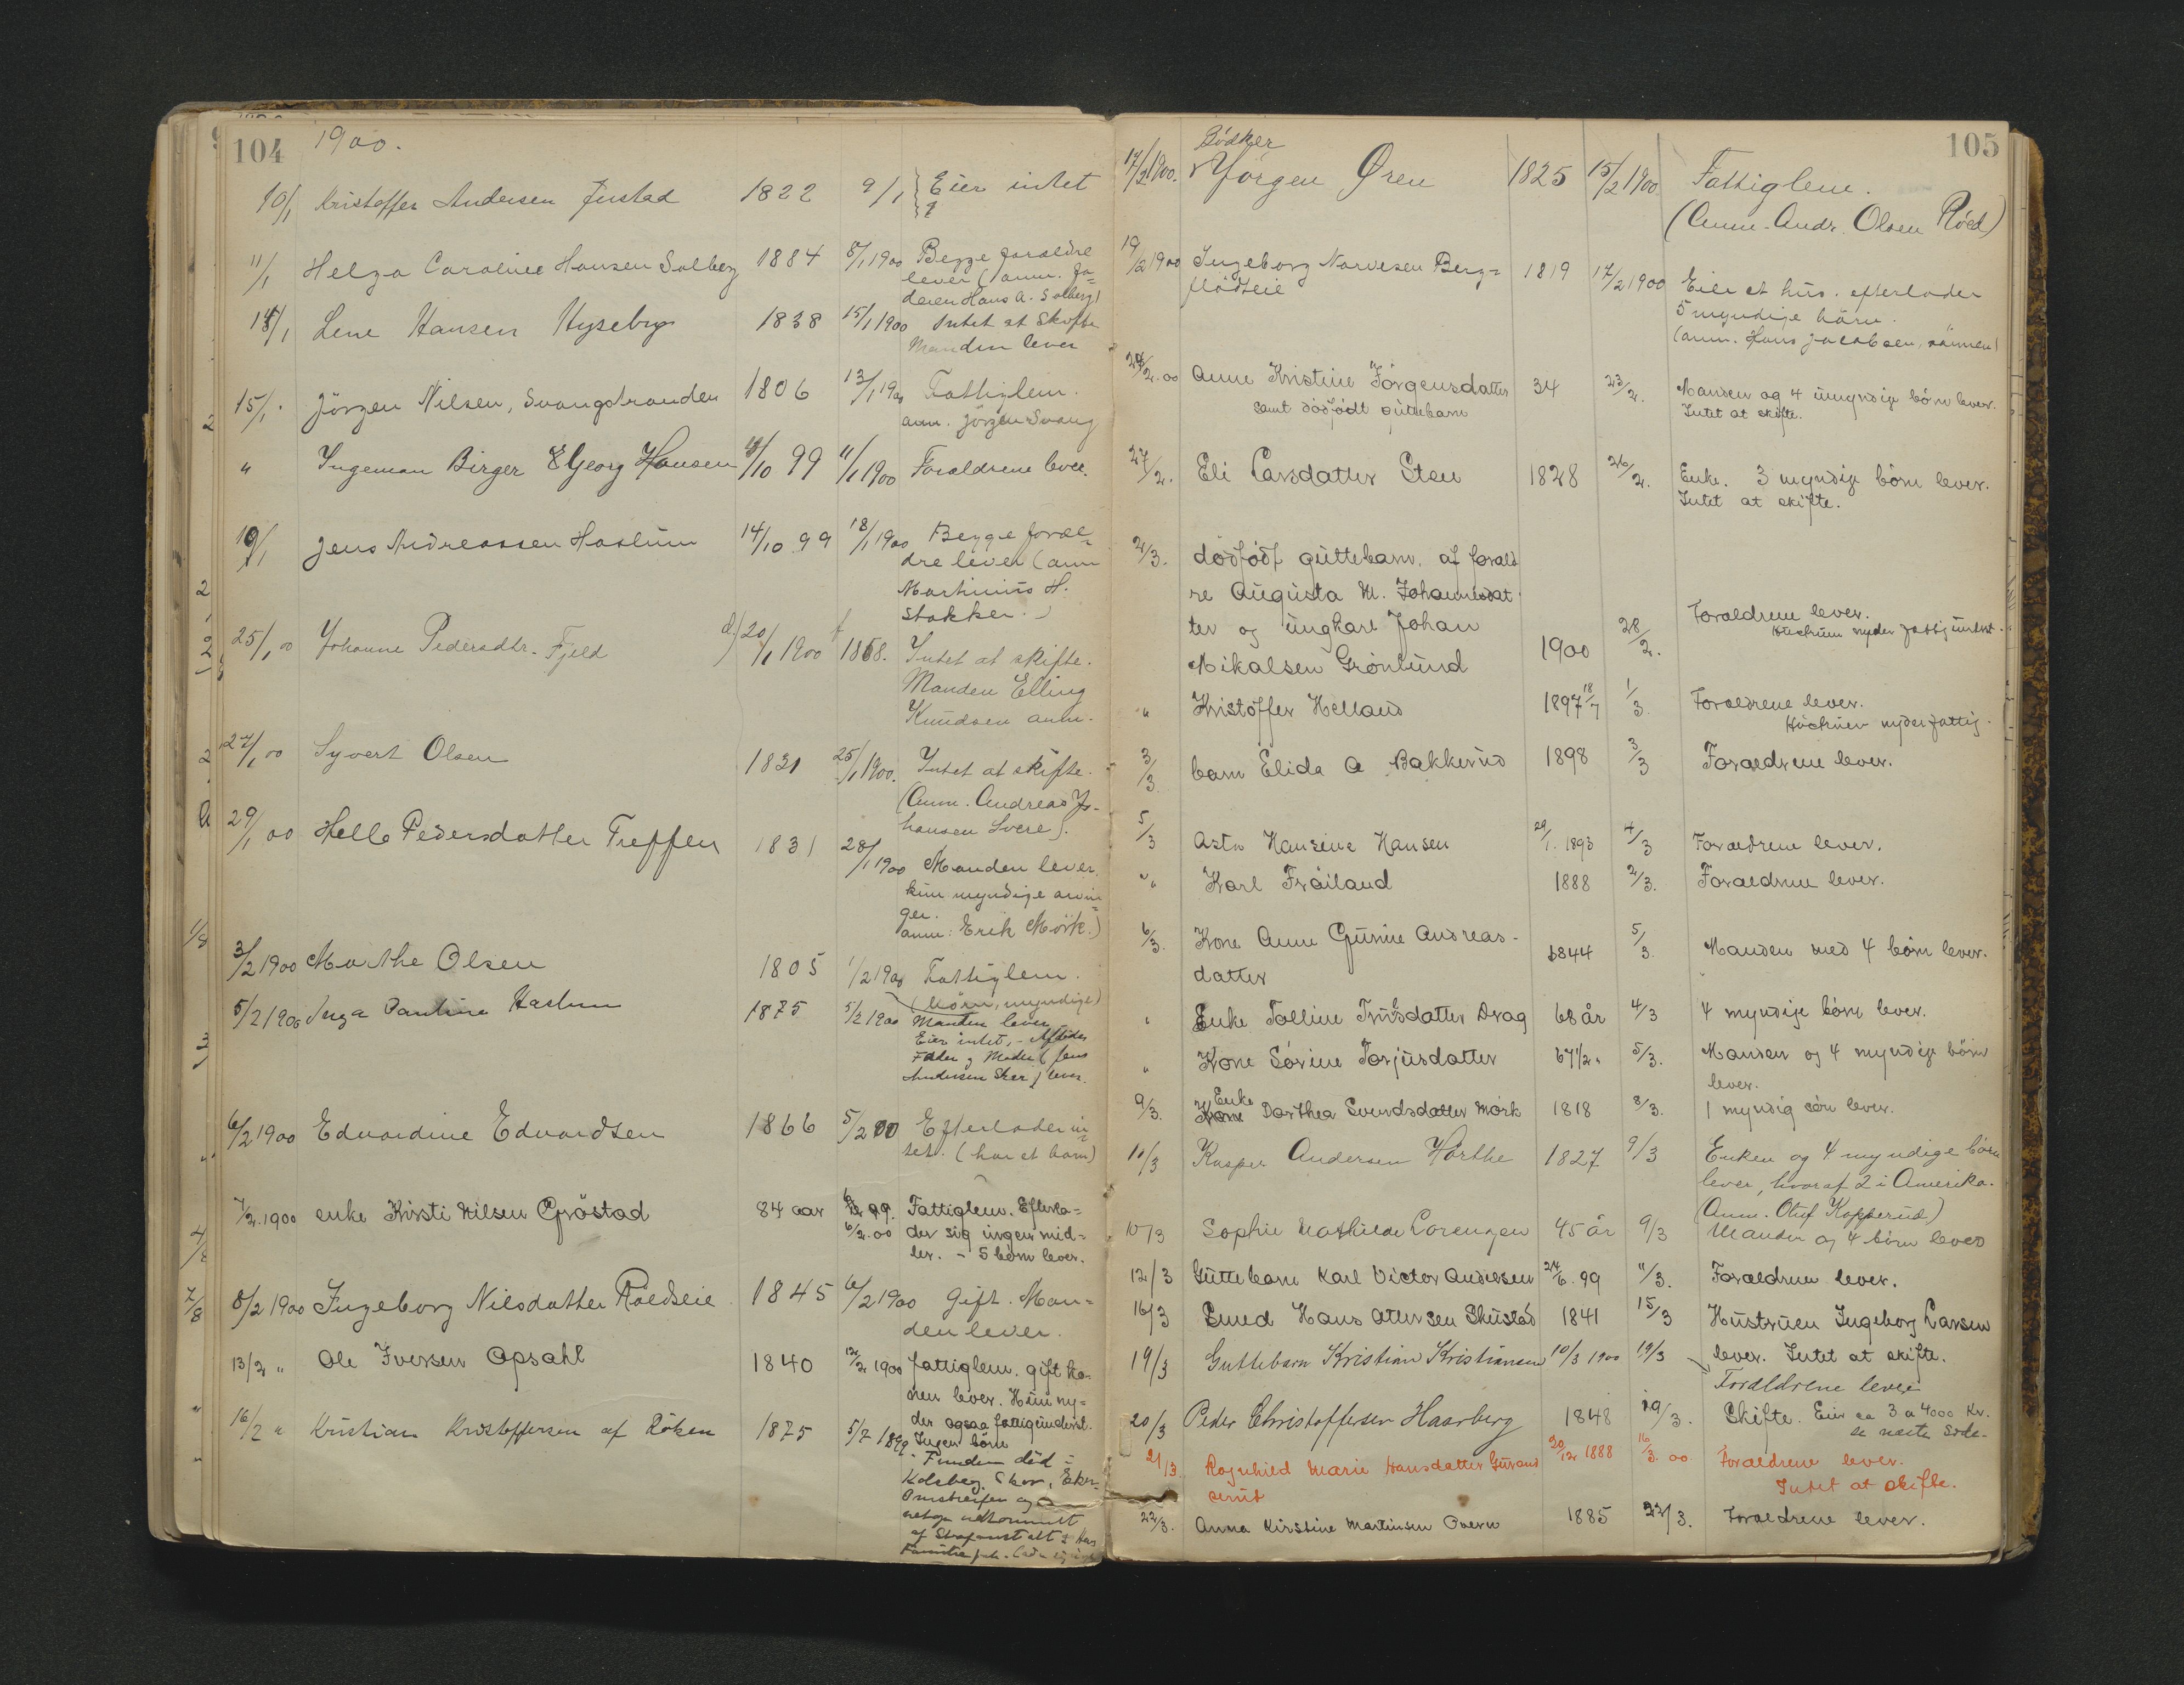 104 1900.
10/1 Kristoffer Andersen Justad 1822 9/1 Eier intet
11/1 Helga Caroline Hansen Solberg 1884 8/1 1900 Begge foraeldre
lever (anm. Fa=
deren Hans A. Solberg)
Lene Hansen Hyseby 1838 15/1 1900 Intet at Skifte
Manden lever
15/1. Jörgen Nilsen, Svangstranden 1806 13/1 1900 Fattiglem.
anm. Jörgen Svang
" Ingeman Birger Georg Hansen /10 99 11/1 1900 Foraldrene lever.
19/1 Jens Andreassen Haslum 14/10 99 18/1 1900 Begge forael=
dre lever (anm
Martinius H.
Stokker.)
25/1 00 Johanne Pedersdtr. Fjeld d/ 20/1 1900 f 1868. Intet at skifte.
Manden Elling
Knudsen anm.
27/1 00 Syvert Olsen 1831 25/1 1900. Intet at skifte.
(Anm. Andreas Jo-
hansen Svere).
29/1 00 Helle Pedersdatter Treffen 1831 28/1 1900 Manden lever
kun myndige arvin=
ger.
anm: Erik Mörk.)
3/2 1900 Marthe Olsen 1805 1/2 1900 Fattiglem.
(börn, myndige)
5/2 1900 Inga Pauline Haslum 1875 5/2 1900 Manden lever
Eier intet, - Afdødes
Fader og Moder (Jens
Andersen Sker) lever.
6/2 1900 Edvardine Edvardsen 1866 5/2 00 Efterlader in=
tet. (har et barn)
7/2. 1900 enke Kirsti Nilsen Gröstad 84 aar 6/2. 00 Fattiglem. Efterla=
der sig ingen mid=
ler. - 5 börn lever.
8/2 1900 Ingeborg Nilsdatter Röedseie 1845 6/2 1900 Gift. Man=
den lever.
13/2 " Ole Iversen Opsahl 1840 12/2 1900 fattiglem. gift ko=
nen lever. Hun ny=
der ogsaa fattigunderst.
Ingen börn
16/2 " Kristian Kristoffersen af Röken 1875 5/7 1899. - Funden död i
Kolsberg Skov, Eker-
Omstreifer og
netop udkommet
af Strafanstalt
105
17/2 1900. Bödker
Jörgen Ören 1825 15/2 1900 Fattiglem.
(Anm. Andr. Olsen Röed)
19/2 1900 Ingeborg Narvesen Berg=
flödteie 1819 17/2 1900 Eier et hus. efterlader
5 myndige börn.
(anm. Hans Jacobsen, sönnen)
24/2. 00 Anne Kristine Jörgensdatter 34 23/2. Manden og 4 umyndige börn lever.
samt dödfödt guttebarn Intet at skifte.
27/2. Eli Larsdatter Sten 1828 26/2. Enke. 3 myndige börn lever.
Intet at skifte.
2/3. dödfödt guttebarn. af forald
re Augusta M. Johannesdat
ter og ungkarl Johan Foraldrene lever.
Mikalsen Grönlund 1900 28/2. Huskuen nyder fattigunderst.
" Kristoffer Helland 1897 18/7 1/3. Foraldrene lever.
nyder fattig.
3/3 barn Elida A Bakkerud 1898 3/3 Foraeldrene lever.
5/3 Asta Hansine Hansen 29/1. 1893 4/3 Foraeldrene lever.
" Karl Fröiland 1888 2/3. Foraeldrene lever.
6/3. Kone Anne Gunine Andreas-
datter 1844 5/3. Manden med 4 börn lever.
" Enke Talline Trulsdatter Drag 68 år 4/3 4 myndige börn lever.
" Kone Sörine Torjusdatter 67 1/2 " 5/3. Manden og 4 myndige börn
lever.
9/3. Enke
Kone Dorthea Svendsdatter Mörk 1818 8/3. 1 myndig sön lever.
10/3 Kasper Andersen Hörthe 1827 9/3 Enken og 4 myndige börn
lever, hvoraf 2 i Amerika.
(Anm. Oluf Kopperud)
10/3 Sophie Mathilde Lorenzen 45 år 9/3 Manden og 4 börn lever
12/3 Guttebarn Karl Victor Andersen 24/6. 99 11/3. Foraeldrene lever.
16/3 Smed Hans Ottersen Skustad 1841 15/3 Hustruen Ingeborg Larsen
lever. Intet at skifte.
19/3 Guttebarn Kristian Kristiansen 10/3 1900 19/3 Foraldrene lever
20/3 Peder Christoffersen Haarberg 1848 19/3. Skifte. Eier ca 3 a 4000 Kr.
se næste Side.
21/3 Ragnhild Marie Hansdatter Gurand
serud 20/12 1888 16/3. 00 Foraeldrene lever.
Intet at skifte.
22/3. Anna Kirstine Martinsen Overn 1885 22/3. Foraeldrene lever.